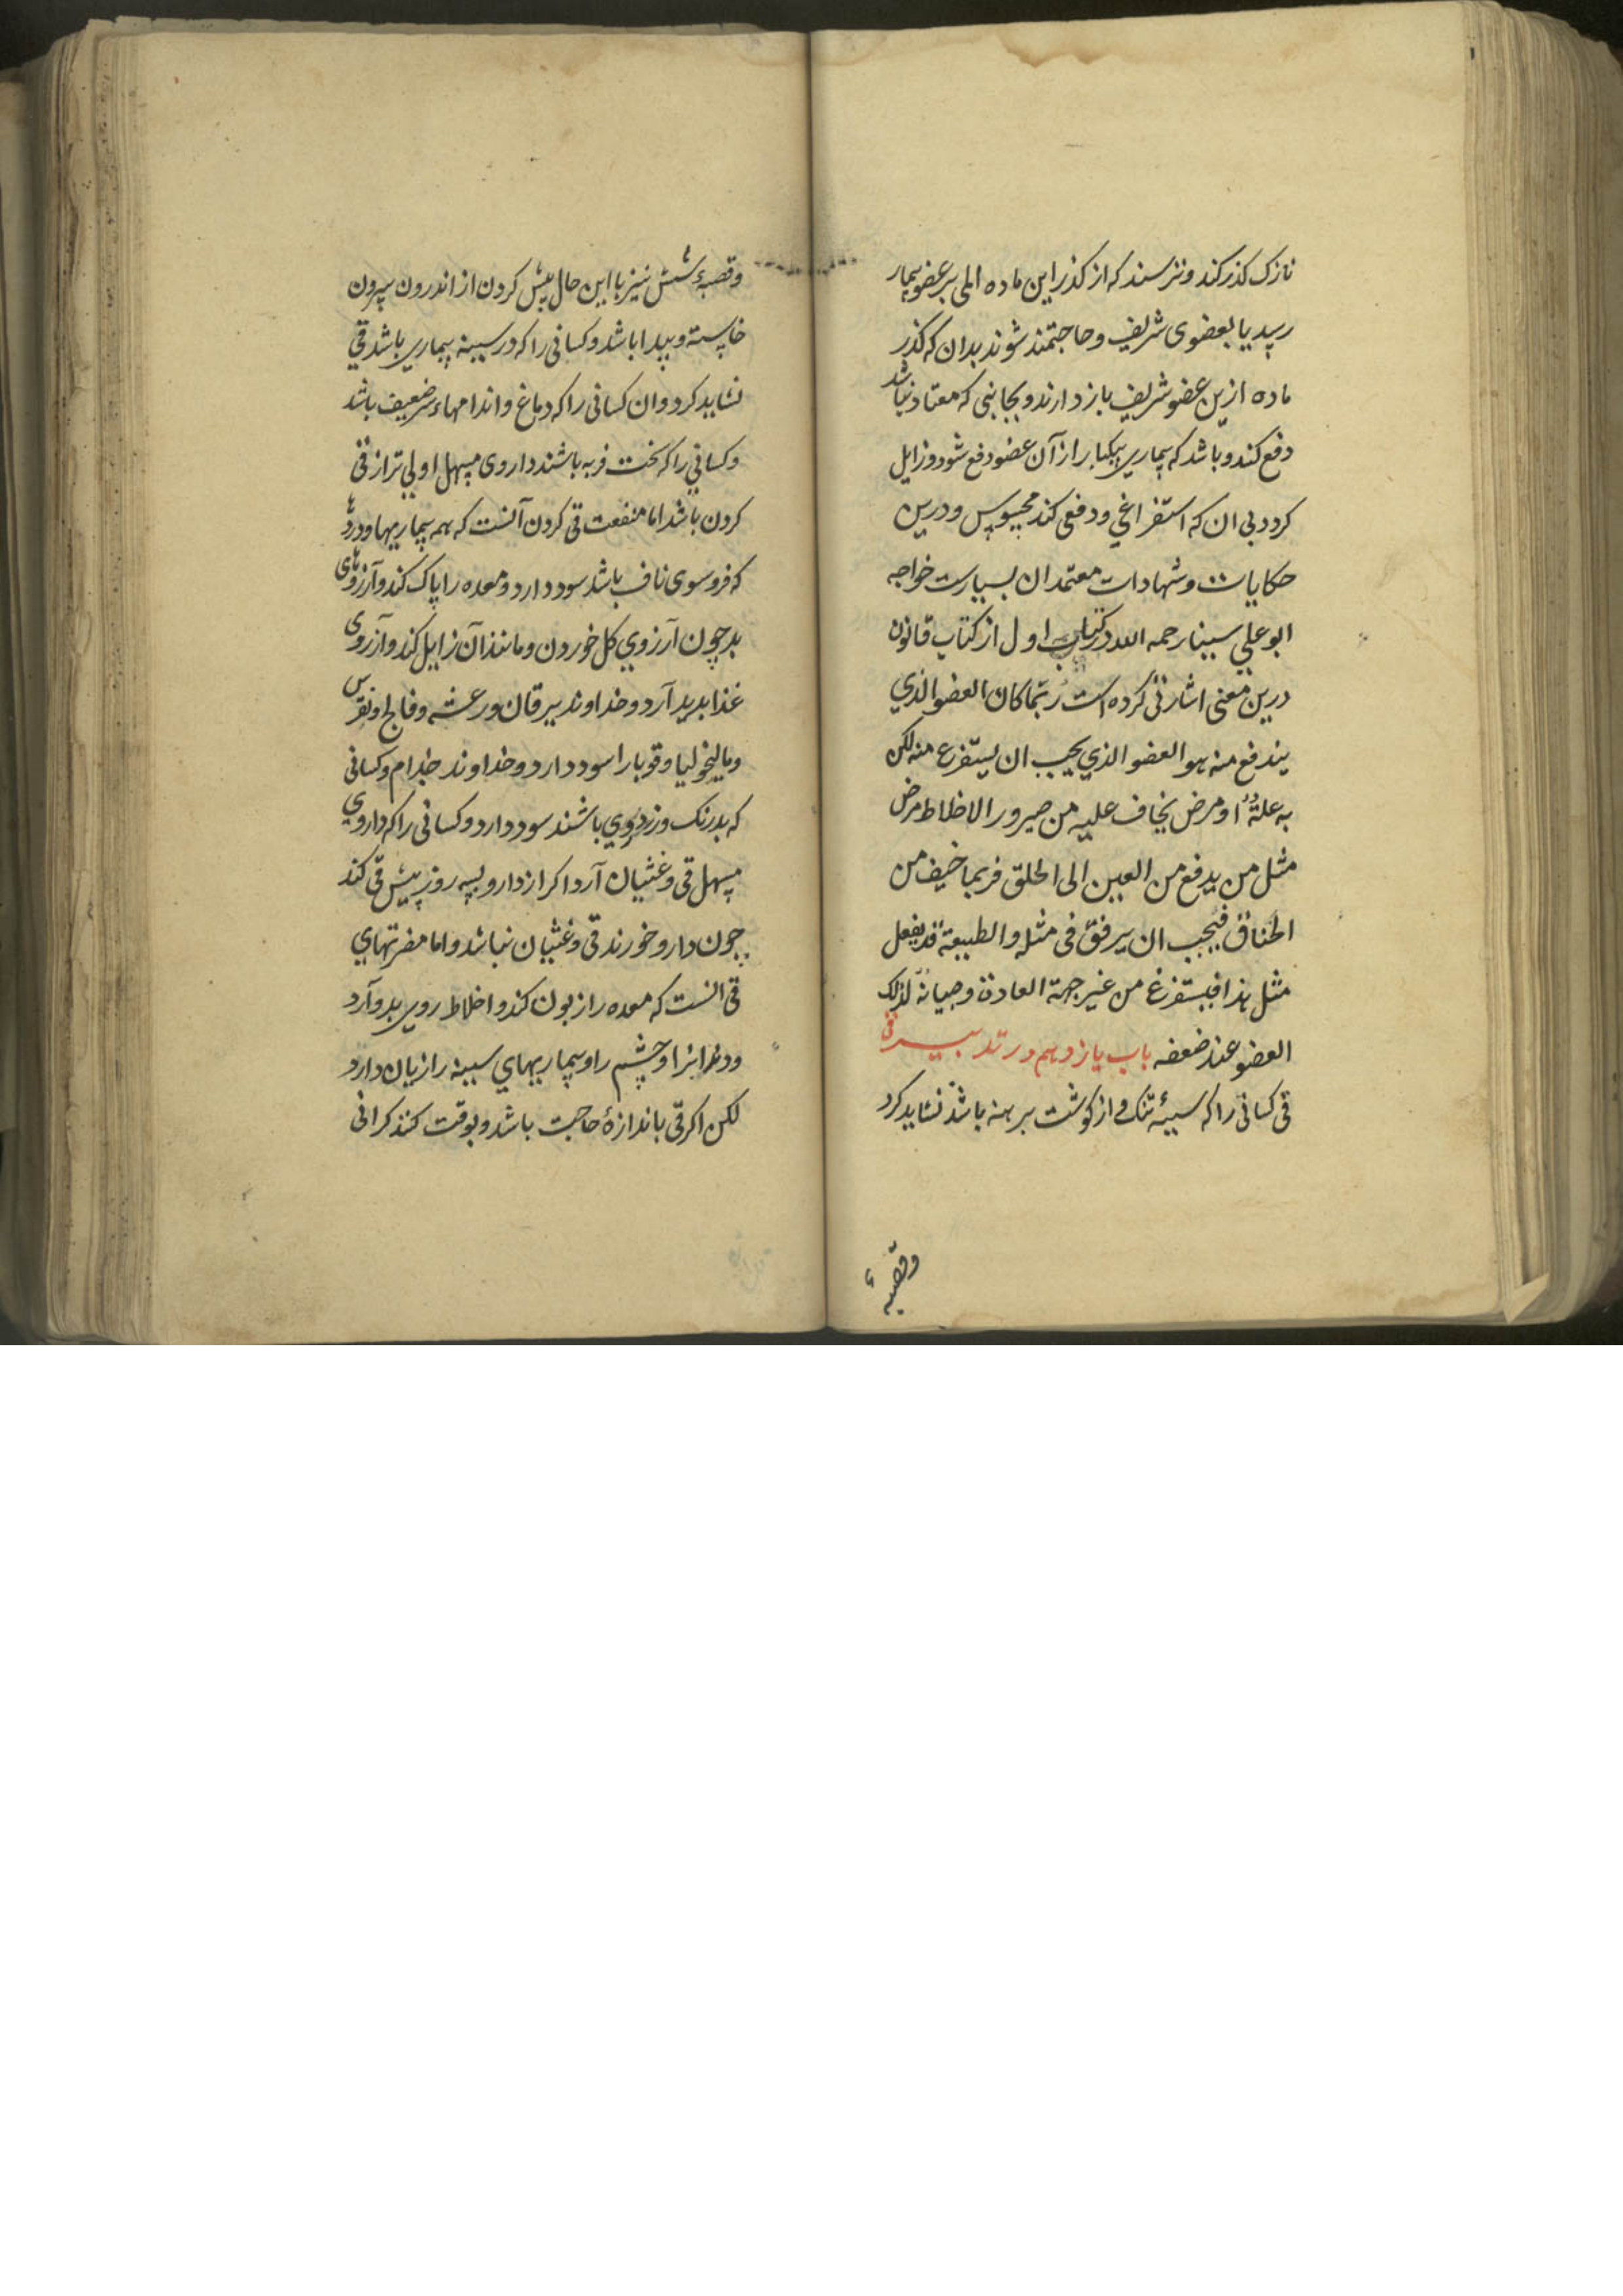 نازک کذر کند و نترسند که از کذر این ماده المی بر عضو بیمار
رسد یا بعضوی شریف و حاجتمند شوند بدان که کذر
ماده ازین عضو شریف بازدارند و بجانبی که معتاد نباشد
دفع کند و باشد که بیماری بیکبار از آن عضو دفع شود و زایل
کردد بی ان که استفراغی و دفعی کند محسوس و درین
حکایات و شهادات معتمدان بسیارست خواجه
ابو علی سینا رحمه الله در کتاب اول از کتاب قانون
درین معنی اشارتی کرده است ربّما کان العضو الذی
یندفع منه هو العضو الذی یجب ان یستفرع منه لکن
به علة او مرض یخاف علیه من صیرور الاخلاط مرض
مثل من یدفع من العین الی الحلق فربما خیف من
الخناق فیجب ان یرفق فی مثله والطبیعة قد یفعل
مثل هذا فیستفرغ من غیر جهة العادة وصیانة لذلک
العضو عند ضعفه باب یازدهم در تدبیر قی
قی کسانی را که سینهٔ تنک و از کوشت برهنه باشد نشاید کرد
وقصبهٔ
وقصبهٔ شش نیز با این حال پیش کردن از اندرون بیرون
خاسته و پیدا باشد و کسانی را که در سینه بیماری باشد قی
نشاید کرد و ان کسانی را که دماغ و اندامهاء سر ضعیف باشد
و کسانی را که سخت فربه باشند داروی مسهل اولی تر از قی
کردن باشد اما منفعت قی کردن آنست که همه بیماریها و دردها
که فروسوی ناف باشد سود دارد و معده را پاک کند و آرزوهای
بد چون آرزوی کل خوردن و مانند آن زایل کند و آرزوی
غذا بدید آرد و خداوند یرقان و رعشه و فالج و نقرس
و مالیخولیا و قوبا را سود دارد و خداوند جذام و کسانی
که بدرنک و زردروی باشند سود دارد و کسانی را که داروی
مسهل قی و غثیان آرد اکر از دارو بسه روز پیش قی کند
چون دارو خورند قی و غثیان نباشد و اما مضرتهای
قی انست که معده را زبون کند و اخلاط روی بدو آرد
و دندانرا و چشم را و بیماریهای سینه را زیان دارد
لکن اکر قی باندازهٔ حاجت باشد و بوقت کند کرانی